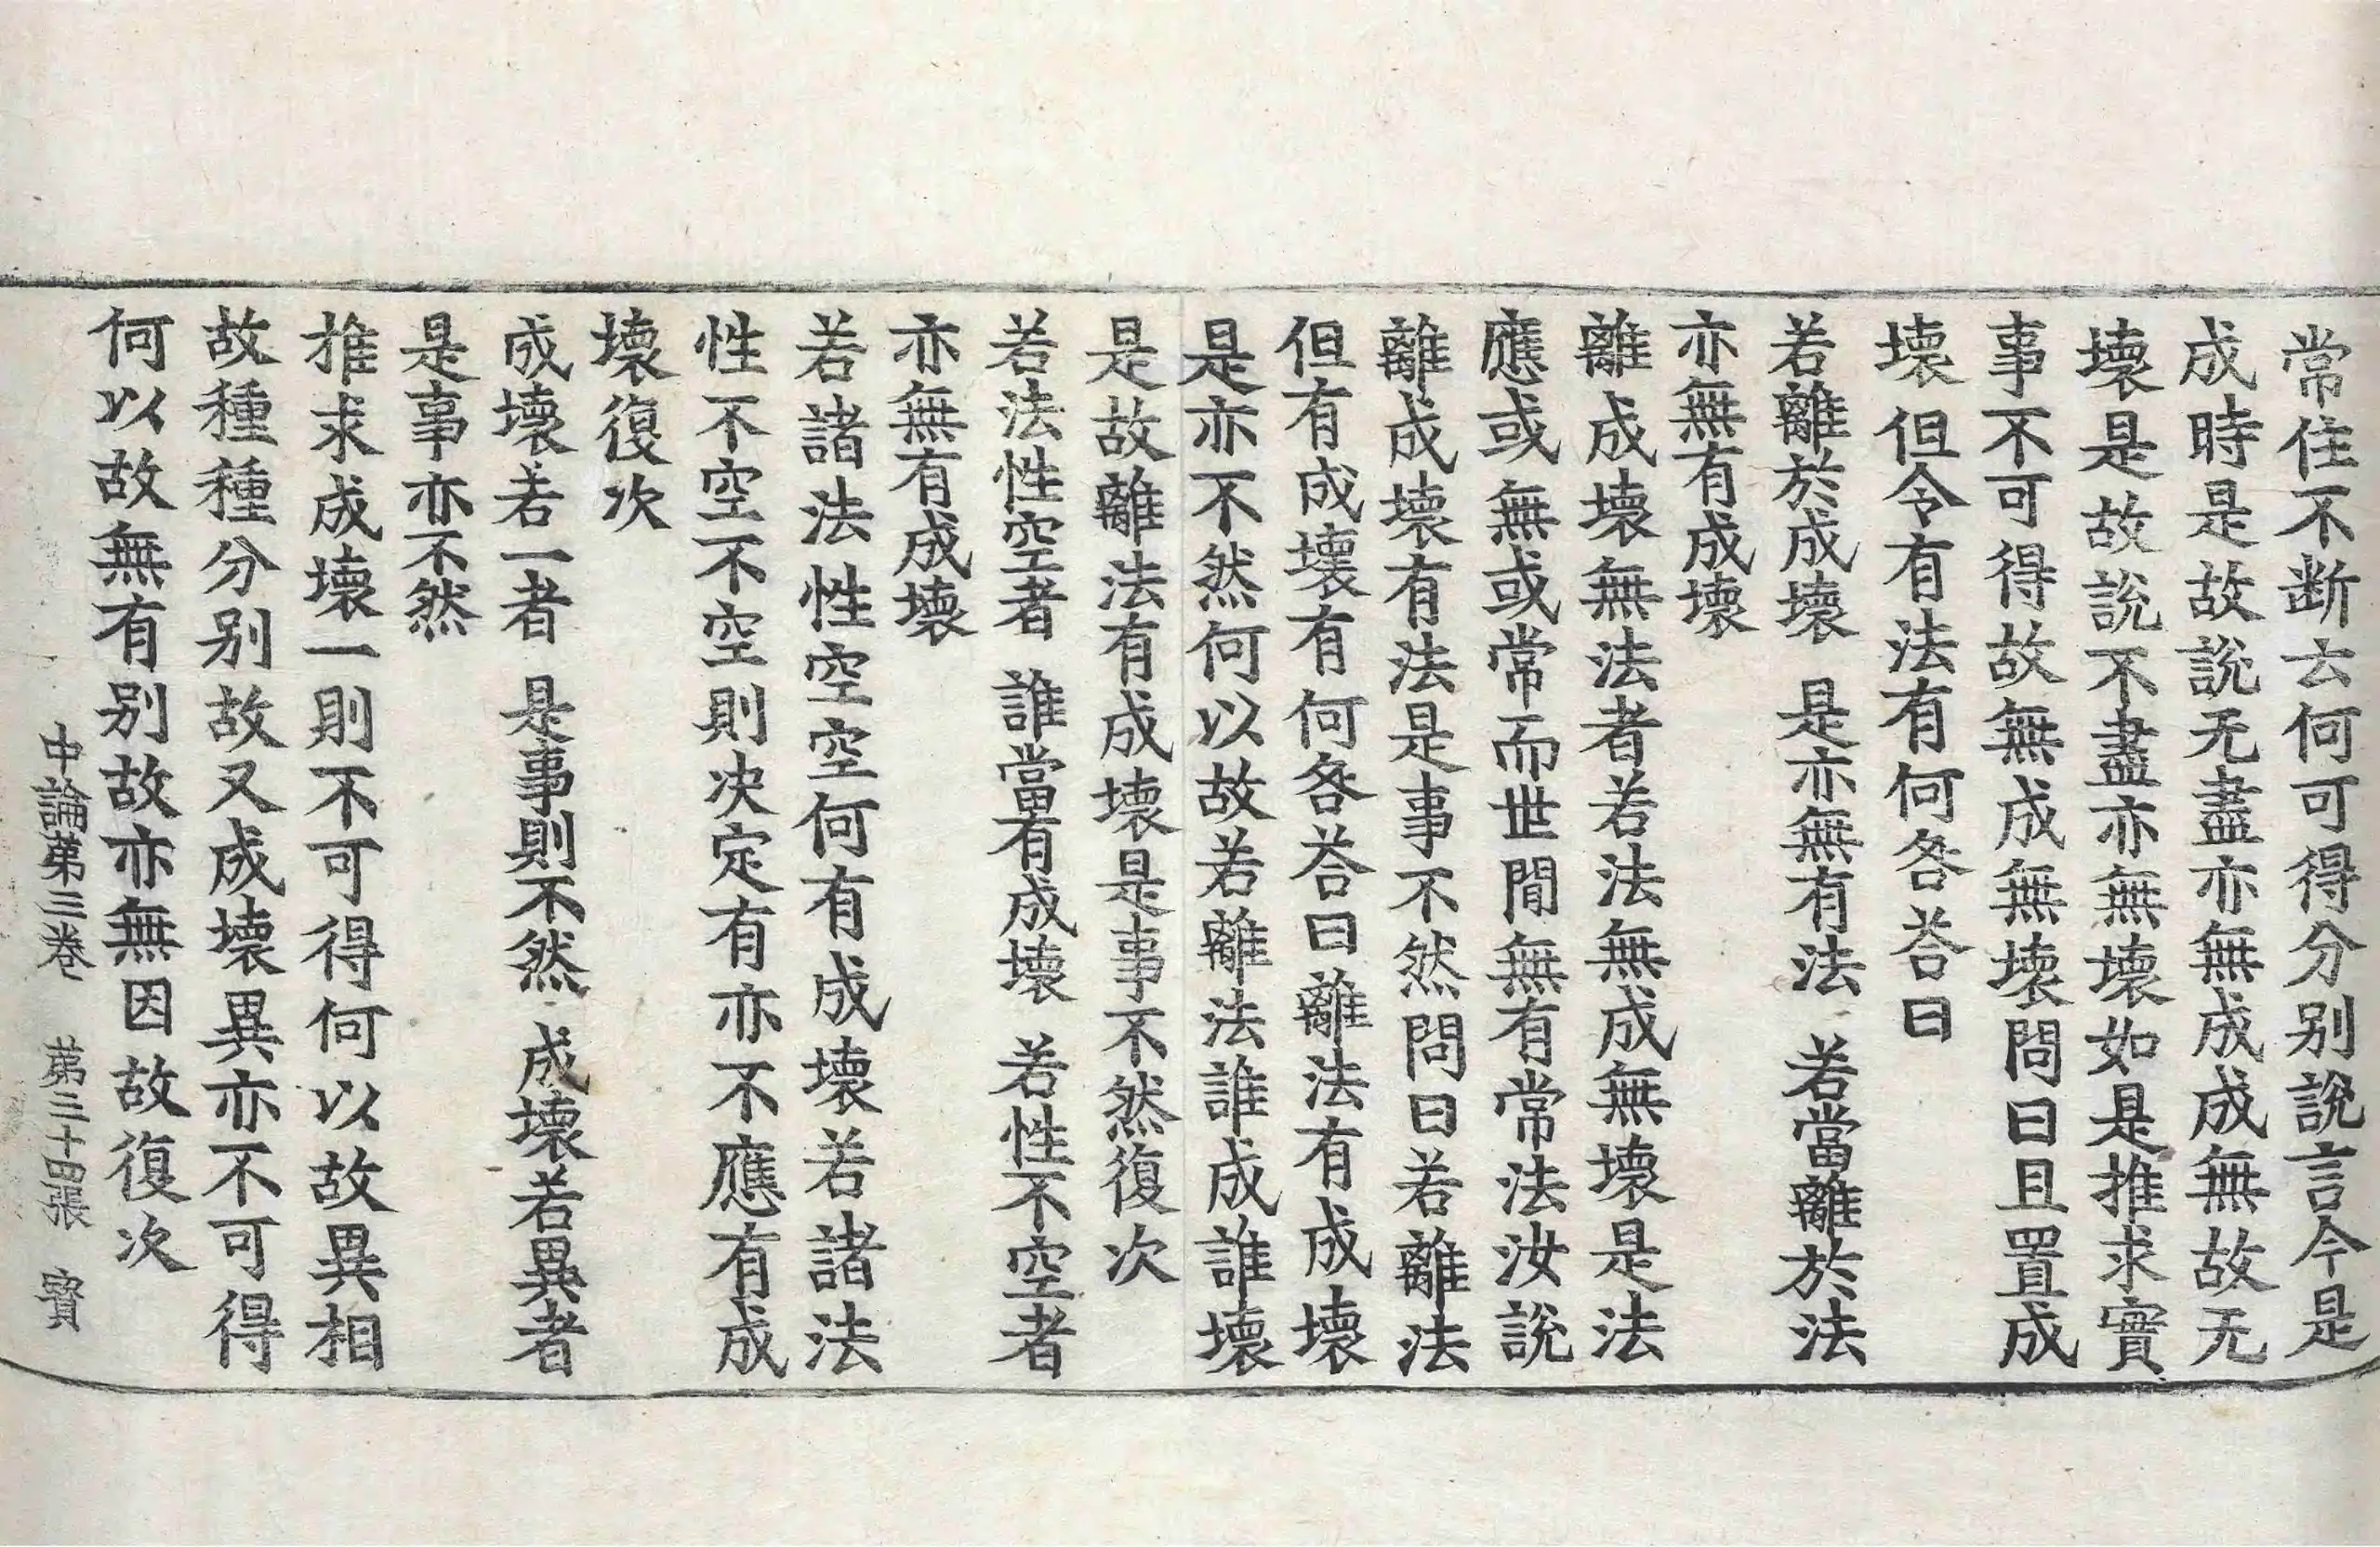 常住不断去何可得分别說言今是
成時是故說无盡亦無成成無故无
壞是故說不盡亦無壞如是推求實
事不可得故無成無壞問曰且置成
壞但令有法有何咎荅曰
若離於成壞　是亦無有法　若當離於法
亦無有成壞
離成壞無法者若法無成無壞是法
應或無或常而世間無有常法汝說
離成壞有法是事不然問曰若離法
但有成壞有何咎荅曰離法有成壞
是亦不然何以故若離法誰成誰壞
是故離法有成壞是事不然復次
若法性空者　誰當有成壞　若性不空者
亦無有成壞
若諸法性空空何有成壞若諸法
性不空不空則决定有亦不應有成
壞復次
成壞若一者　是事則不然　成壞若異者
是事亦不然
推求成壞一則不可得何以故異相
故種種分别故又成壞異亦不可得
何以故無有别故亦無因故復次
中論第三卷　第三十四張　寶